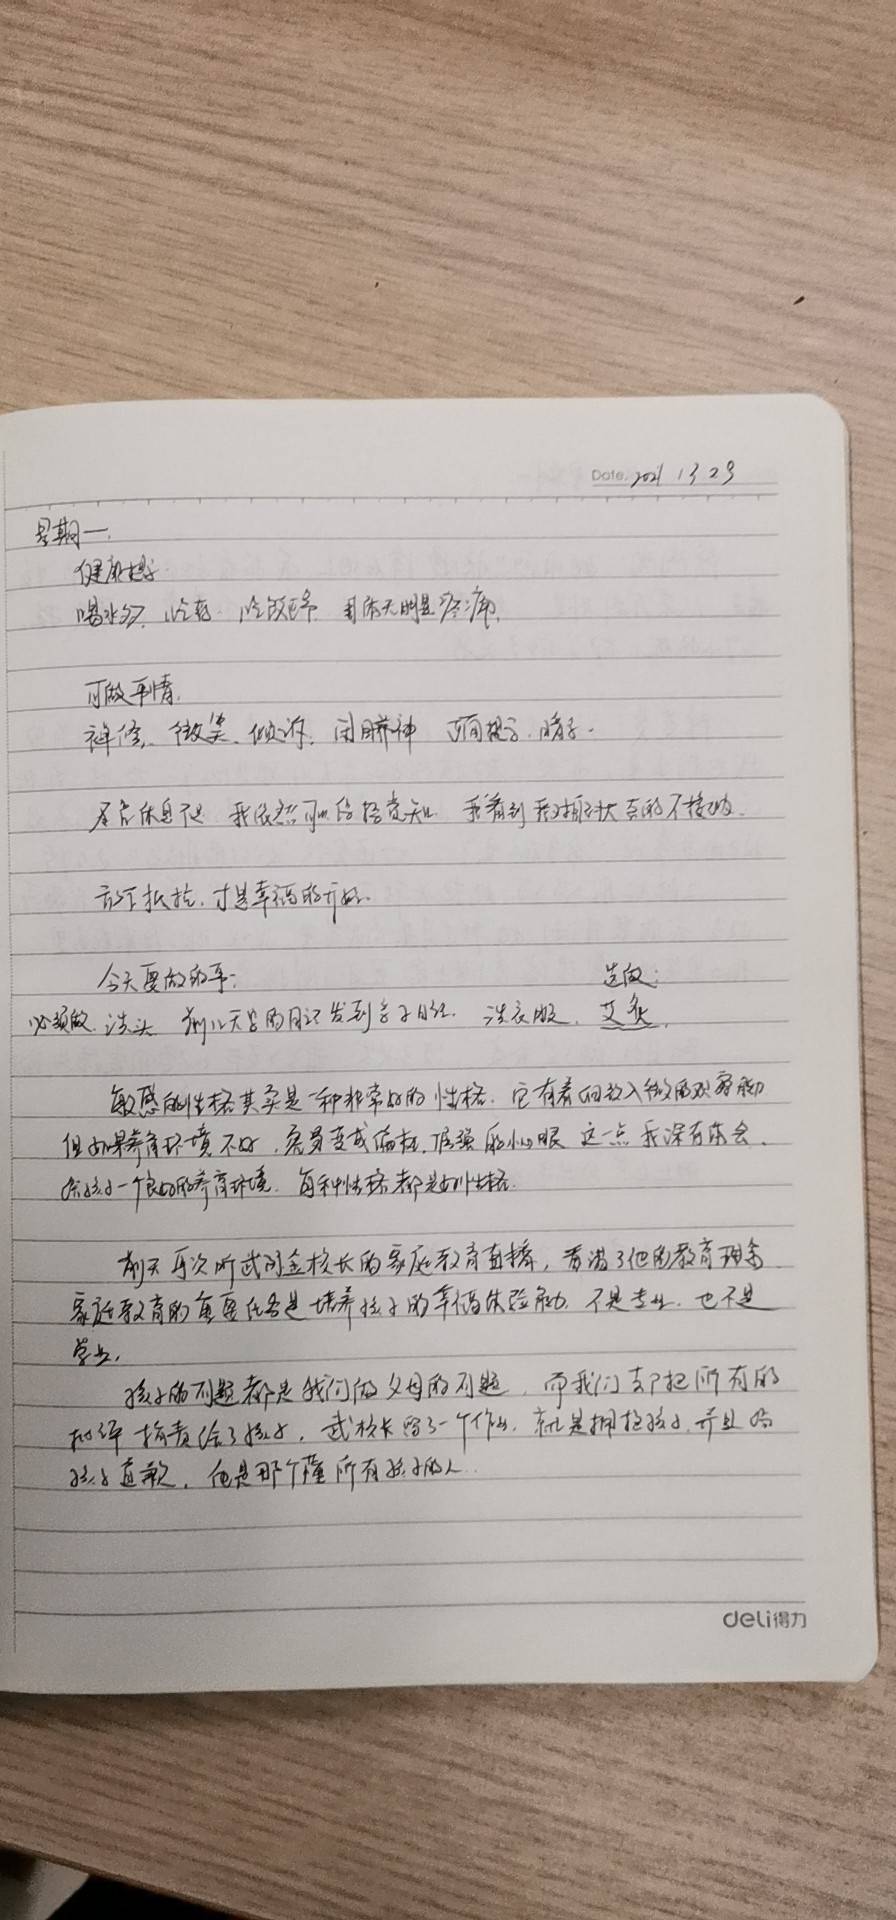 Date. 2021 3 29
星期一.
健康
喝水 吃 吃饭 身体无明显疼痛.
可做事情.
禅修、微笑、倾诉、闭眼养神
我依然可以保持觉知 我看到我 的不接纳.
放下抵抗.才是幸福的开始.
今天要做的事: 选做:
必须做.洗头 前几天写的日记发到 洗衣服. 艾灸.
敏感的性格其实是一种非常好的性格.它有着细致入微的观察能力
但如果养育环境不好,容易变成偏执、 的小心眼 这一点我深有体会.
给孩子一个良好的养育环境.每种性格都是好性格.
前天再次听武 金校长的家庭教育直播, 了他的教育理念
家庭教育的重要任务是培养孩子的幸福体验能力.不是专业.也不是
学业.
孩子的问题都是我们做父母的问题.而我们却把所有的
批评指责给了孩子,武校长留了一个作业.就是拥抱孩子.并且给
孩子道歉. 他是那个懂所有孩子的人.
deli得力